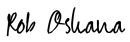 Rob Oshana